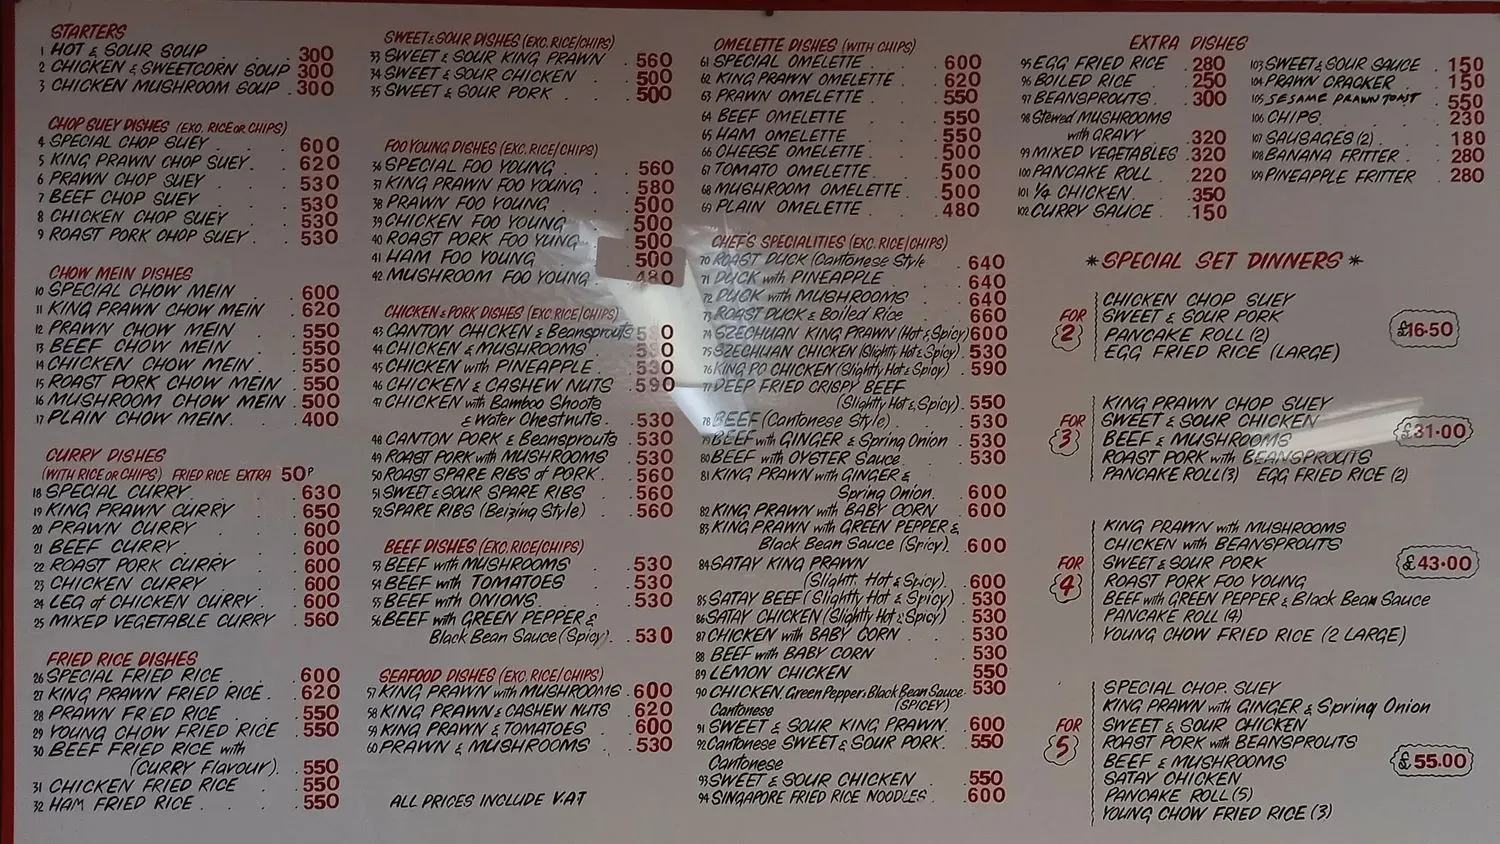 STARTERS
1 HOT & SOUR SOUP 300
2 CHICKEN & SWEETCORN SOUP 300
3 CHICKEN MUSHROOM SOUP . 300
CHOP SUEY DISHES (EXC. RICE OR CHIPS)
4 SPECIAL CHOP SUEY . 600
5 KING PRAWN CHOP SUEY . 620
6 PRAWN CHOP SUEY . 530
7 BEEF CHOP SUEY . 530
8 CHICKEN CHOP SUEY . 530
9 ROAST PORK CHOP SUEY . 530
CHOW MEIN DISHES
10 SPECIAL CHOW MEIN . 600
11 KING PRAWN CHOW MEIN . 620
12 PRAWN CHOW MEIN . 550
13 BEEF CHOW MEIN . 550
14 CHICKEN CHOW MEIN . 550
15 ROAST PORK CHOW MEIN . 550
16 MUSHROOM CHOW MEIN . 500
17 PLAIN CHOW MEIN . 400
CURRY DISHES
(WITH RICE OR CHIPS) FRIED RICE EXTRA 50P
18 SPECIAL CURRY . 630
19 KING PRAWN CURRY . 650
20 PRAWN CURRY . 600
21 BEEF CURRY . 600
22 ROAST PORK CURRY . 600
23 CHICKEN CURRY . 600
24 LEG of CHICKEN CURRY . 600
25 MIXED VEGETABLE CURRY . 560
FRIED RICE DISHES
26 SPECIAL FRIED RICE . 600
27 KING PRAWN FRIED RICE . 620
28 PRAWN FRIED RICE . 550
29 YOUNG CHOW FRIED RICE . 550
30 BEEF FRIED RICE with
(CURRY Flavour) . 550
31 CHICKEN FRIED RICE . 550
32 HAM FRIED RICE . 550
SWEET & SOUR DISHES (EXC. RICE/CHIPS)
33 SWEET & SOUR KING PRAWN 560
34 SWEET & SOUR CHICKEN . 500
35 SWEET & SOUR PORK . 500
FOO YOUNG DISHES (EXC. RICE/CHIPS)
36 SPECIAL FOO YOUNG . 560
37 KING PRAWN FOO YOUNG . 580
38 PRAWN FOO YOUNG . 500
39 CHICKEN FOO YOUNG . 500
40 ROAST PORK FOO YUNG 500
41 HAM FOO YOUNG 500
42 MUSHROOM FOO YOUNG 480
CHICKEN & PORK DISHES (EXC. RICE/CHIPS)
43 CANTON CHICKEN & Beansprouts
44 CHICKEN & MUSHROOMS .
45 CHICKEN with PINEAPPLE . 530
46 CHICKEN & CASHEW NUTS 590
47 CHICKEN with Bamboo Shoots
& Water Chestnuts . 530
48 CANTON PORK & Beansprouts . 530
49 ROAST PORK with MUSHROOMS . 530
50 ROAST SPARE RIBS of PORK . 560
51 SWEET & SOUR SPARE RIBS . 560
52 SPARE RIBS (Beizing Style) . 560
BEEF DISHES (EXC. RICE/CHIPS)
53 BEEF with MUSHROOMS . 530
54 BEEF with TOMATOES . 530
55 BEEF with ONIONS . 530
56 BEEF with GREEN PEPPER &
Black Bean Sauce (Spicy) . 530
SEAFOOD DISHES (EXC. RICE/CHIPS)
57 KING PRAWN with MUSHROOMS . 600
58 KING PRAWN & CASHEW NUTS . 620
59 KING PRAWN & TOMATOES . 600
60 PRAWN & MUSHROOMS . 530
ALL PRICES INCLUDE V.A.T
OMELETTE DISHES (WITH CHIPS)
61 SPECIAL OMELETTE . 600
62 KING PRAWN OMELETTE . 620
63 PRAWN OMELETTE . 550
64 BEEF OMELETTE . 550
65 HAM OMELETTE . 550
66 CHEESE OMELETTE . 500
67 TOMATO OMELETTE . 500
68 MUSHROOM OMELETTE . 500
69 PLAIN OMELETTE . 480
CHEF'S SPECIALITIES (EXC. RICE/CHIPS)
70 ROAST DUCK (Cantonese Style . 640
71 DUCK with PINEAPPLE . 640
72 DUCK with MUSHROOMS . 640
73 ROAST DUCK & Boiled Rice . 660
74 SZECHUAN KING PRAWN (Hot & Spicy) 600
75 SZECHUAN CHICKEN (Slightly Hot & Spicy) . 530
76 KING PO CHICKEN (Slightly Hot & Spicy) . 590
77 DEEP FRIED CRISPY BEEF
(Slightly Hot & Spicy) . 550
78 BEEF (Cantonese Style) . 530
79 BEEF with GINGER & Spring Onion . 530
80 BEEF with OYSTER Sauce . 530
81 KING PRAWN with GINGER &
Spring Onion . 600
82 KING PRAWN with BABY CORN . 600
83 KING PRAWN with GREEN PEPPER &
Black Bean Sauce (Spicy) . 600
84 SATAY KING PRAWN
(Slightt. Hot & Spicy) . 600
85 SATAY BEEF (Slightly Hot & Spicy) . 530
86 SATAY CHICKEN (Slightly Hot & Spicy) . 530
87 CHICKEN with BABY CORN . 530
88 BEEF with BABY CORN . 530
89 LEMON CHICKEN 550
90 CHICKEN. Green Pepper & Black Bean Sauce 530
(SPICEY)
Cantonese
91 SWEET & SOUR KING PRAWN . 600
92 Cantonese SWEET & SOUR PORK . 550
Cantonese
93 SWEET & SOUR CHICKEN . 550
94 SINGAPORE FRIED RICE NOODLES . 600
EXTRA DISHES
95 EGG FRIED RICE . 280
96 BOILED RICE . 250
97 BEANSPROUTS . 300
98 Stewed MUSHROOMS
with GRAVY . 320
99 MIXED VEGETABLES . 320
100 PANCAKE ROLL . 220
101 1/4 CHICKEN . 350
102 CURRY SAUCE . 150
103 SWEET & SOUR SAUCE . 150
104 PRAWN CRACKER . 150
105 SESAME PRAWN TOAST 550
106 CHIPS . 230
107 SAUSAGES (2) . 180
108 BANANA FRITTER . 280
109 PINEAPPLE FRITTER . 280
* SPECIAL SET DINNERS *
FOR 2
CHICKEN CHOP SUEY
SWEET & SOUR PORK
PANCAKE ROLL (2)
EGG FRIED RICE (LARGE)
£16·50
FOR 3
KING PRAWN CHOP SUEY
SWEET & SOUR CHICKEN
BEEF & MUSHROOMS
ROAST PORK with BEANSPROUTS
PANCAKE ROLL (3) EGG FRIED RICE (2)
£31·00
FOR 4
KING PRAWN with MUSHROOMS
CHICKEN with BEANSPROUTS
SWEET & SOUR PORK
ROAST PORK FOO YOUNG
BEEF with GREEN PEPPER & Black Bean Sauce
PANCAKE ROLL (4)
YOUNG CHOW FRIED RICE (2 LARGE)
£43·00
FOR 5
SPECIAL CHOP. SUEY
KING PRAWN with GINGER & Spring Onion
SWEET & SOUR CHICKEN
ROAST PORK with BEANSPROUTS
BEEF & MUSHROOMS
SATAY CHICKEN
PANCAKE ROLL (5)
YOUNG CHOW FRIED RICE (3)
£55·00